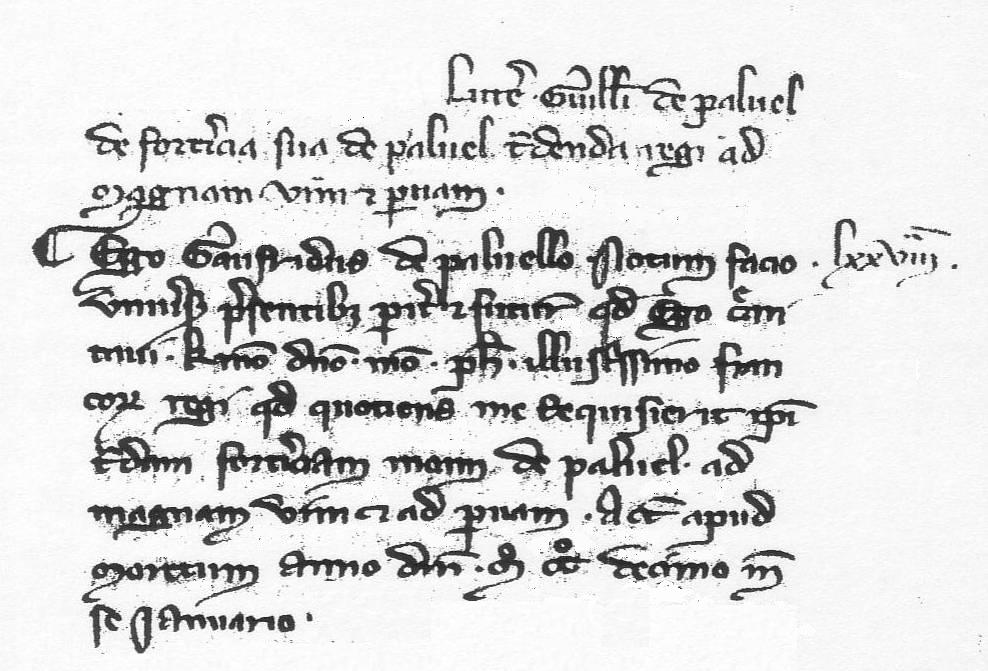 Littere Guilli de paluel
de fortericia sua de paluel tdenda regi ad
magnam vim et paruam.
Ego Gaufridus de paluello Notum facio. lxxviii.
vniuersis presentibz parit et futuris qd Ego
karmo dno. mo. ph. illustrissimo fran
corum regi qd quotiens me Requisierit ipi
tdam forteritiam meam de paluel. ad
magnam vim et ad paruam. Act apud
Moretum anno dni. M cc decimo men
se Januario.